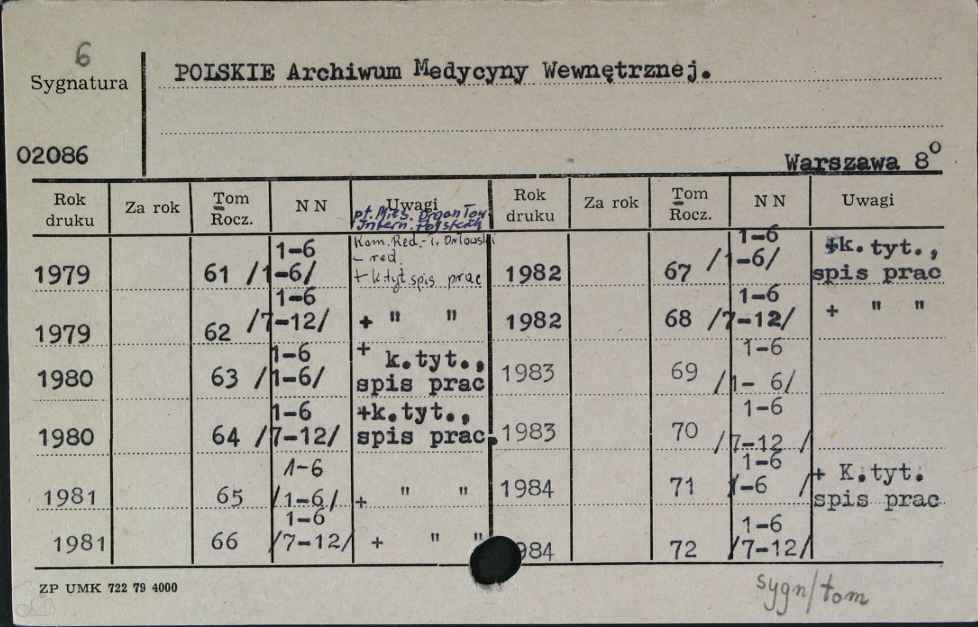 6
Sygnatura
POLSKIE Archiwum Medycyny Wewnętrznej.
02086
Warszawa 8°
Rok druku Za rok Tom Rocz. N N Uwagi Rok druku Za rok Tom Rocz. N N Uwagi
pt. Mies. Organ Tow.
Intern. Polskich
Kom. Red. - i. Orłowski
- red.
1979 61 1-6 /1-6/ + k.tyt spis prac
1979 62 1-6 /7-12/ + " "
1980 63 1-6 /1-6/ + k.tyt., spis prac
1980 64 1-6 /7-12/ +k.tyt., spis prac.
1981 65 1-6 /1-6/ + " "
1981 66 1-6 /7-12/ + " "
1982 67 1-6 /1-6/ +k.tyt., spis prac
1982 68 1-6 /7-12/ + " "
1983 69 1-6 /1- 6/
1983 70 1-6 /7-12 /
1984 71 1-6 /-6 / + K.tyt. spis prac
984 72 1-6 /7-12/
ZP UMK 722 79 4000
sygn/tom